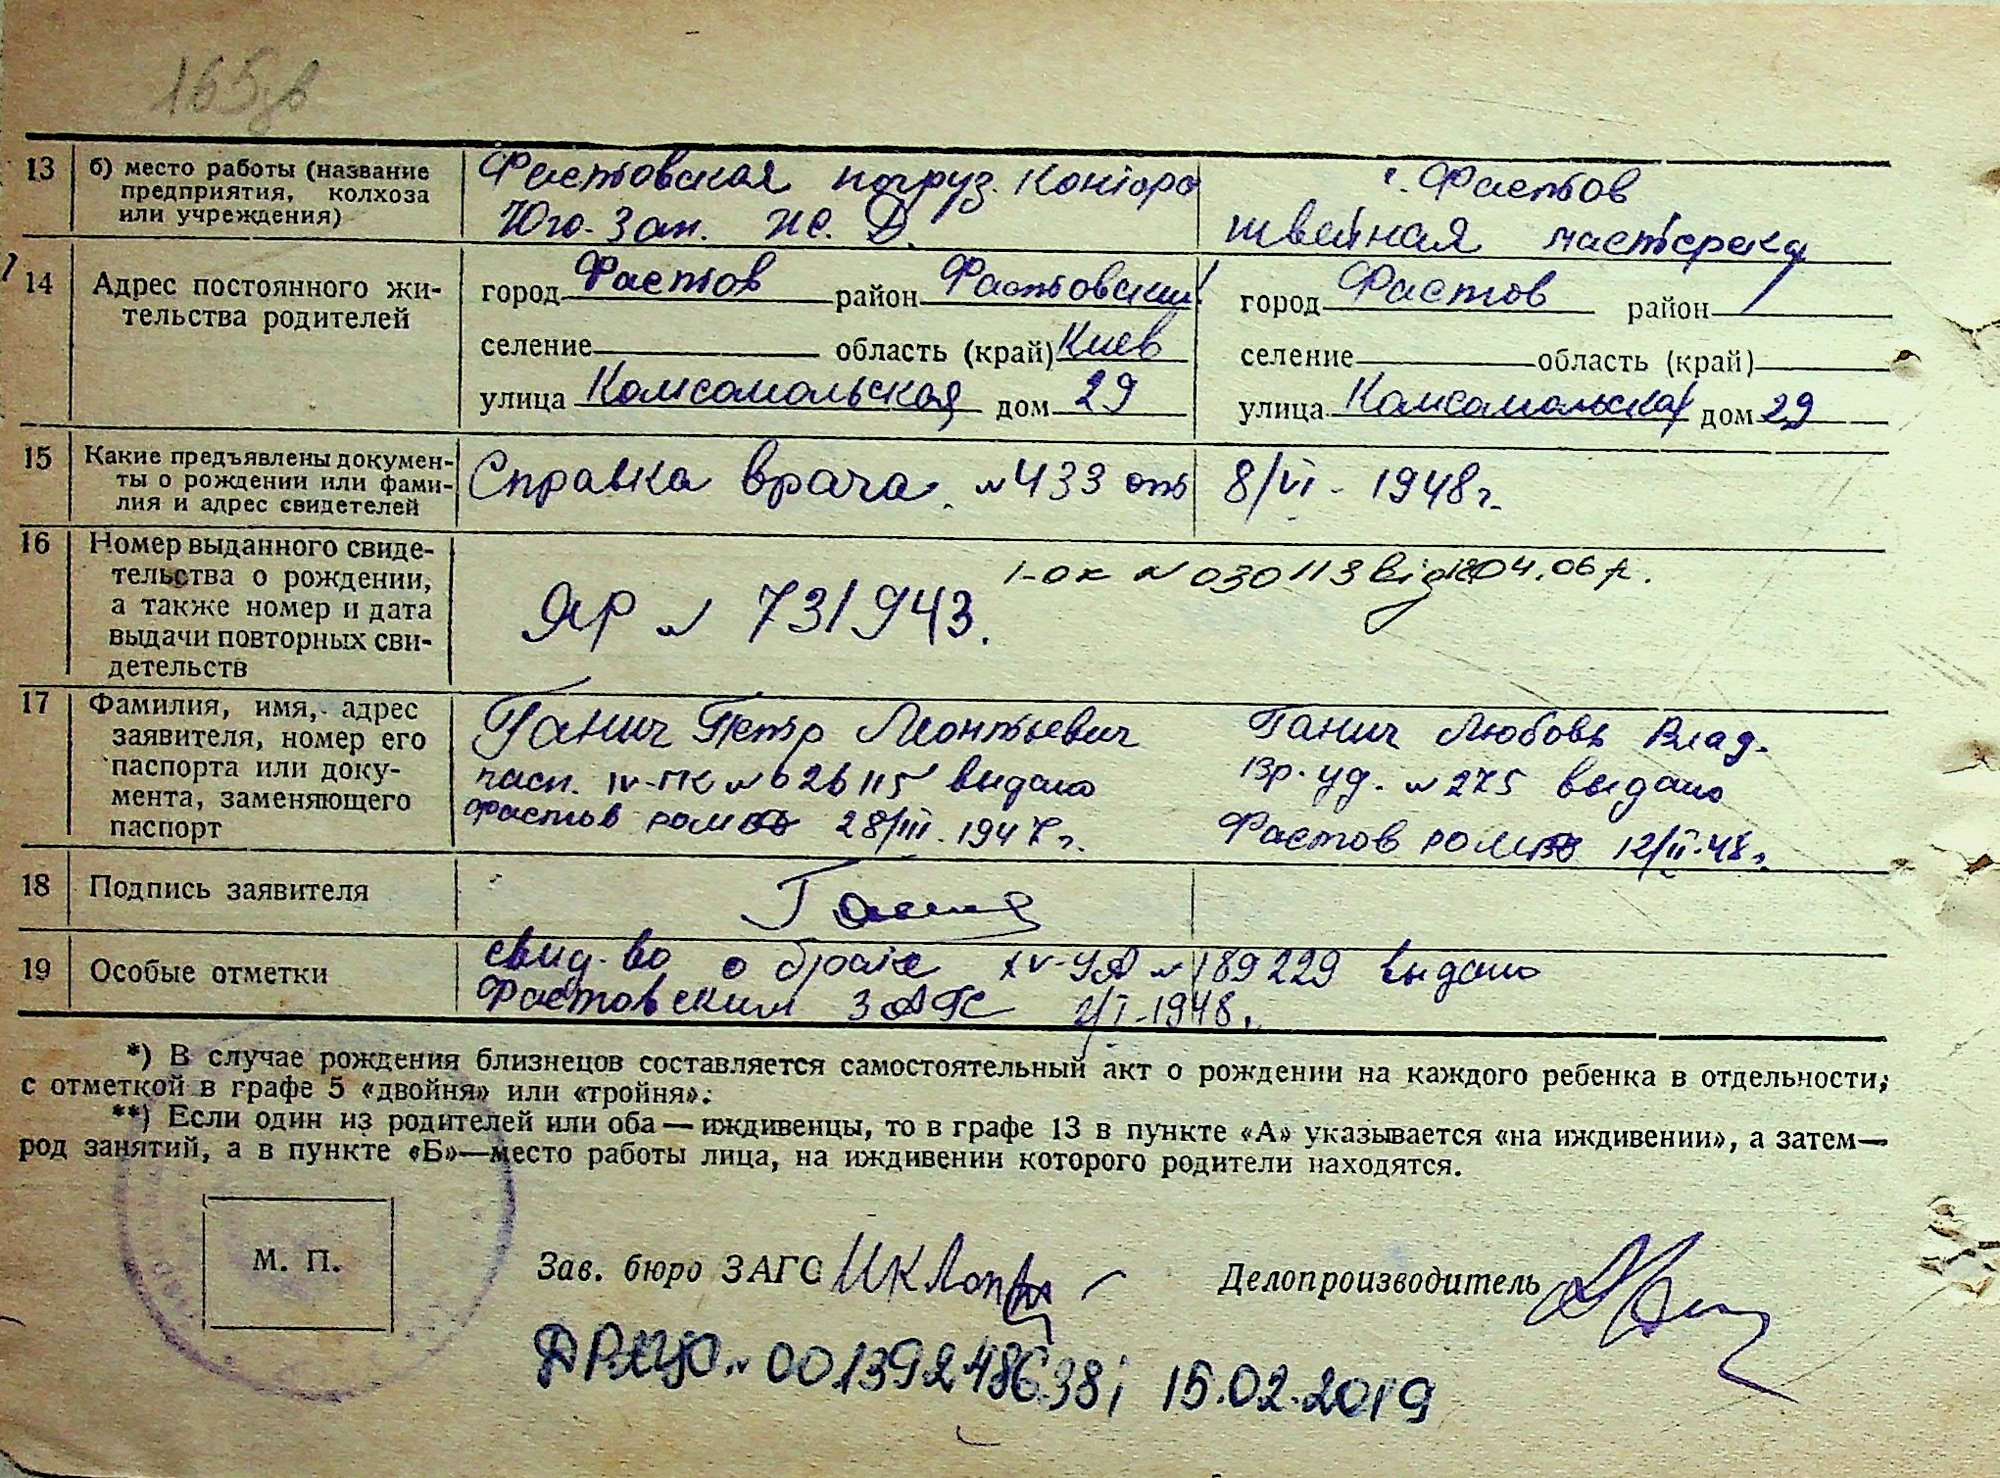 165зв
13 б) место работы (название предприятия, колхоза или учреждения)
Фастовская погруз. контора
Юго-Зап. ж. Д.
г. Фастов
швейная мастерска
14 Адрес постоянного жи-
тельства родителей
город Фастов район Фастовский
селение область (край) Киев
улица Комсомольская дом 29
город Фастов район
селение область (край)
улица Комсомольская дом 29
15 Какие предъявлены докумен-
ты о рождении или фами-
лия и адрес свидетелей
Справка врача. №433 от 8/VI- 1948г.
16 Номер выданного свиде-
тельства о рождении,
а также номер и дата
выдачи повторных сви-
детельств
I-ок №030113 від 04.06р.
ЯР № 731943.
17 Фамилия, имя, адрес
заявителя, номер его
паспорта или доку-
мента, заменяющего
паспорт
Ганич Петр Леонтьевич
пасп. IV-ПК №626115 выдано
Фастов ром 28/III.1947г.
Ганич Любовь Влад.
Вр. уд. №275 выдано
Фастов ром 12/II-48г.
18 Подпись заявителя
Ганич
19 Особые отметки
свид-во о браке XV-УА №189229 выдано
Фастовским ЗАГС 2/I-1948.
*) В случае рождения близнецов составляется самостоятельный акт о рождении на каждого ребенка в отдельности,
с отметкой в графе 5 «двойня» или «тройня».
**) Если один из родителей или оба—иждивенцы, то в графе 13 в пункте «А» указывается «на иждивении», а затем—
род занятий, а в пункте «Б»—место работы лица, на иждивении которого родители находятся.
М. П.
Зав. бюро ЗАГС
Делопроизводитель
ДРАЦС №00139248638 і 15.02.2019